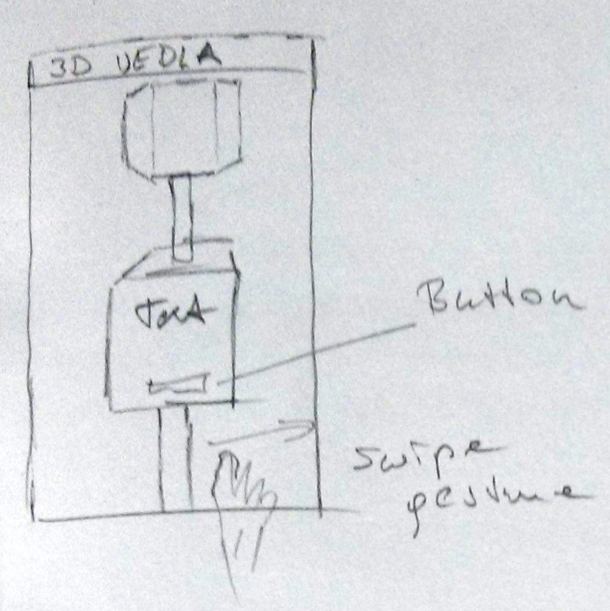 3D VEDLA
Text
Button
Swipe
gesture